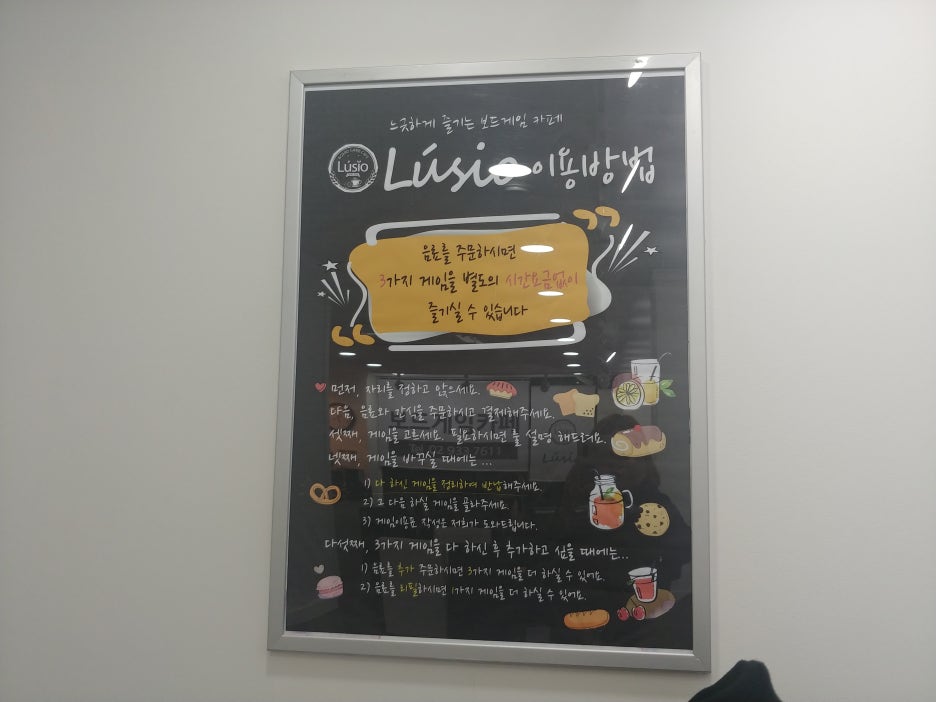 느긋하게 즐기는 보드게임 카페
Lúsio
Lúsio 이용방법
음료를 주문하시면
3가지 게임을 별도의 시간요금없이
즐기실 수 있습니다
먼저, 자리를 정하고 앉으세요.
다음, 음료와 간식을 주문하시고 결제해주세요.
셋째, 게임을 고르세요. 필요하시면 룰 설명 해드려요.
넷째, 게임을 바꾸실 때에는...
1) 다 하신 게임을 정리하여 반납해주세요.
2) 그 다음 하실 게임을 골라주세요.
3) 게임이용표 작성은 저희가 도와드립니다.
다섯째, 3가지 게임을 다 하신 후 추가하고 싶을 때에는...
1) 음료를 추가 주문하시면 3가지 게임을 더 하실 수 있어요.
2) 음료를 리필하시면 1가지 게임을 더 하실 수 있어요.
보드게임카페
Lúsio